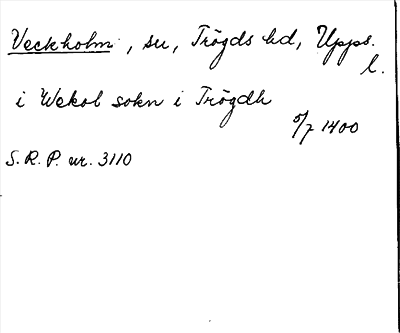 Veckholm, sn, Trögds hd, Upps.
l.
i Wekol sokn i Trögdh
5/7 1400
S.R.P. nr. 3110